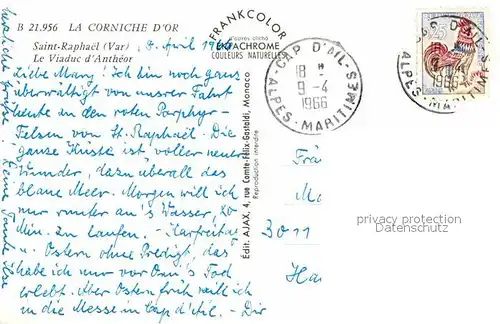 B 21.956 LA CORNICHE D'OR
Saint-Raphaël (Var)
Le Viaduc d'Anthéor
8. April 1966
FRANKCOLOR
d'après cliché
EKTACHROME
COULEURS NATURELLES
CAP D'AIL
18 H
9-4
1966
ALPES-MARITIMES
Liebe Mary! Ich bin noch ganz
überwältigt von unsrer Fahrt
heute an den roten Porphyr-
Felsen von St. Raphaël. Die
ganze Küste ist voller neuer
Wunder, dazu überall das
blaue Meer. Morgen will ich
nur runter ans Wasser, 20
Min. zu laufen. - Karfreitag
u. Ostern ohne Predigt, das
habe ich nur vor Omi's Tod
erlebt. Aber Ostern früh will ich
in die Messe in Cap d'Ail. - Dir
herzliche Grüsse, Deine Tante Ilse
Édit. AJAX, 4, rue Comte-Félix-Gastaldi, Monaco
Reproduction interdite
Frä
Ma
3011
Ha
privacy protection
Datenschutz